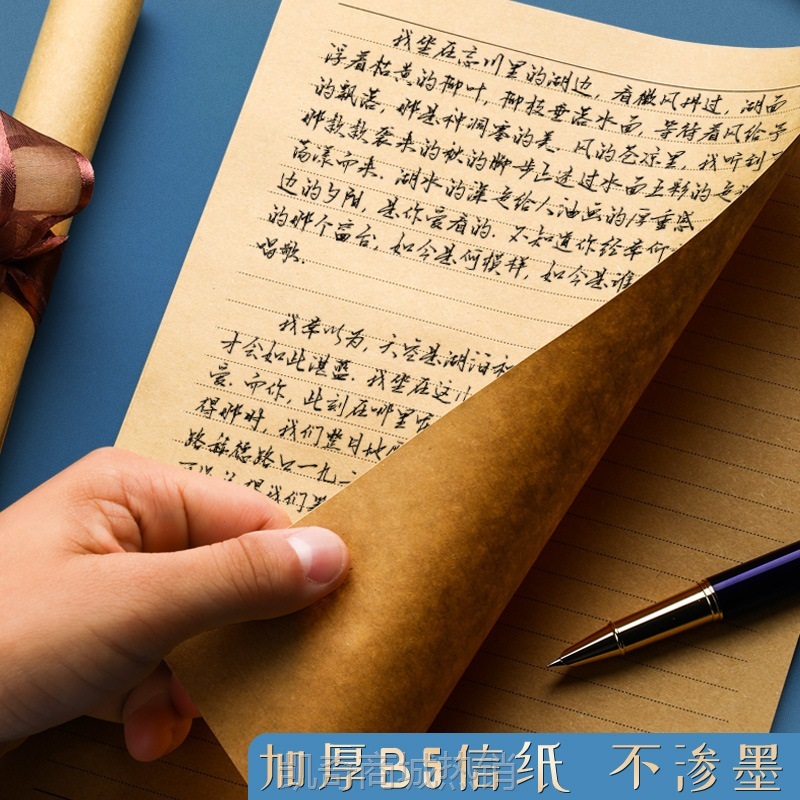 我坐在忘川里的湖边，看微风拂过，湖面
浮着枯黄的柳叶，柳枝垂落水面，等待着风给予
的飘落，那是种凋零的美．风的苍凉里，我听到了
那款款袭来的秋的脚步正透过水面五彩的
荡漾而来．湖水的深处给人油画的厚重感
边的夕阳，是你爱看的．不知道你经常仰
的那个窗台，如今是何模样，如今是谁
唱歌．
我常以为，天空是湖泊和
才会如此湛蓝．我坐在这
爱．而你，此刻在哪里
得那时，我们整日地
路移德路口一九
得我们
加厚B5信纸 不渗墨
凯奇商城热销